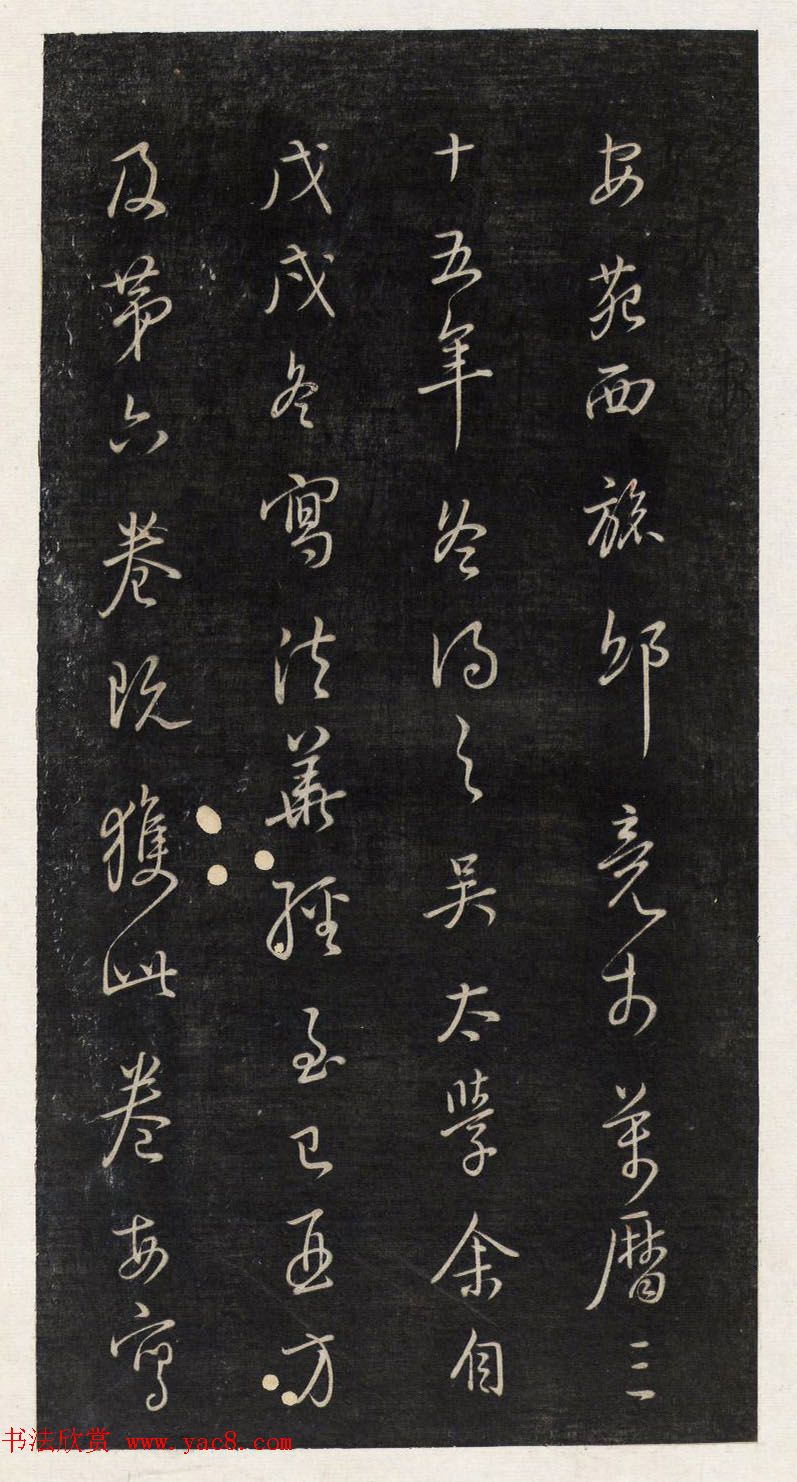 安苑西旅邸竟于萬曆三
十五年冬得之吴太學余自
戊戌冬寫法華經至己酉方
及第六卷既獲此卷每寫
书法欣赏 www.yac8.com